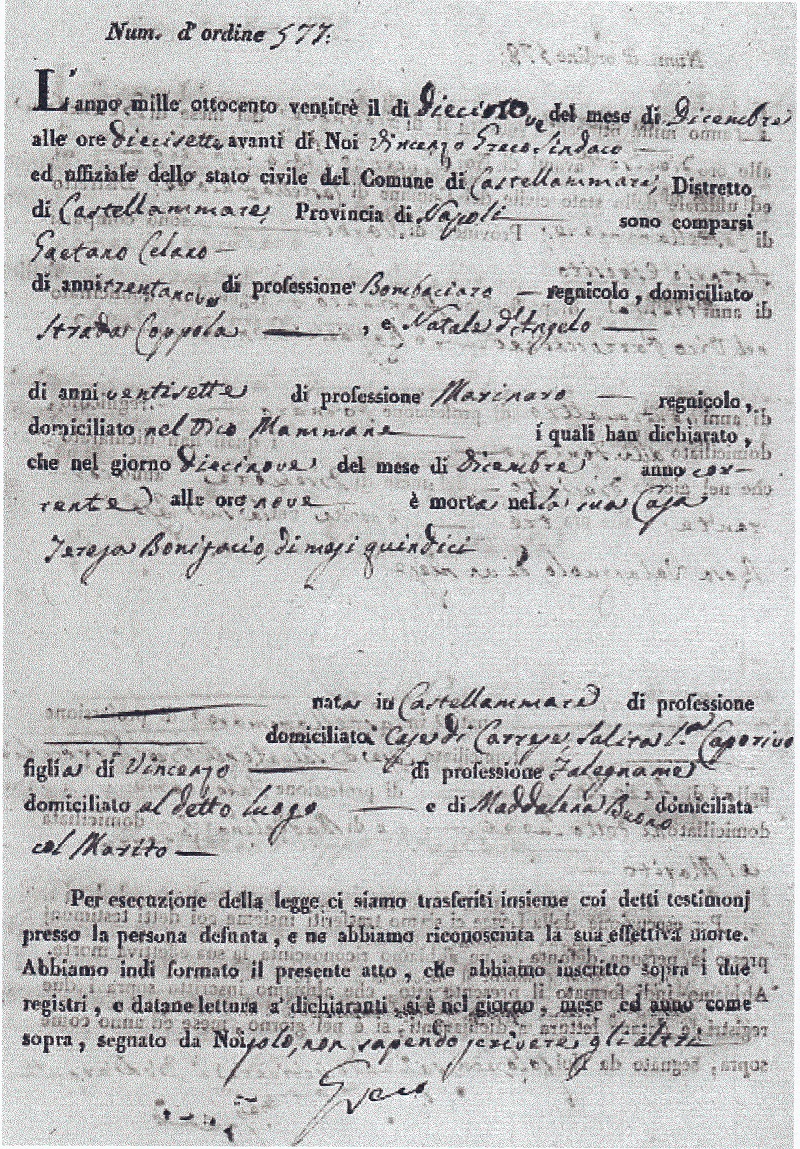 Num. d'ordine 577.
L'anno mille ottocento ventitrè il di diecinove del mese di Dicembre
alle ore diecisette avanti di Noi Vincenzo Greco Sindaco
ed uffiziale dello stato civile del Comune di Castellammare, Distretto
di Castellammare, Provincia di Napoli sono comparsi
Gaetano Celano
di anni trentancinque di professione Bombaciaro regnicolo, domiciliato
Strada Coppola, e Natale d'Angelo
di anni ventisette di professione Marinaro regnicolo,
domiciliato nel Vico Mammane i quali han dichiarato,
che nel giorno diecinove del mese di Dicembre anno cor-
rente alle ore nove è morta nella sua Casa
Teresa Bonifacio, di mesi quindici
nata in Castellammare di professione
domiciliata Case di Carrese, Salita Caporivo
figlia di Vincenzo di professione Falegname
domiciliato al detto luogo e di Maddalena Buono domiciliata
col Marito
Per esecuzione della legge ci siamo trasferiti insieme coi detti testimonj
presso la persona defunta, e ne abbiamo riconosciuta la sua effettiva morte.
Abbiamo indi formato il presente atto, che abbiamo inscritto sopra i due
registri, e datane lettura a' dichiaranti, si è nel giorno, mese ed anno come
sopra, segnato da Noi solo, non sapendo scrivere gli altri
Greco